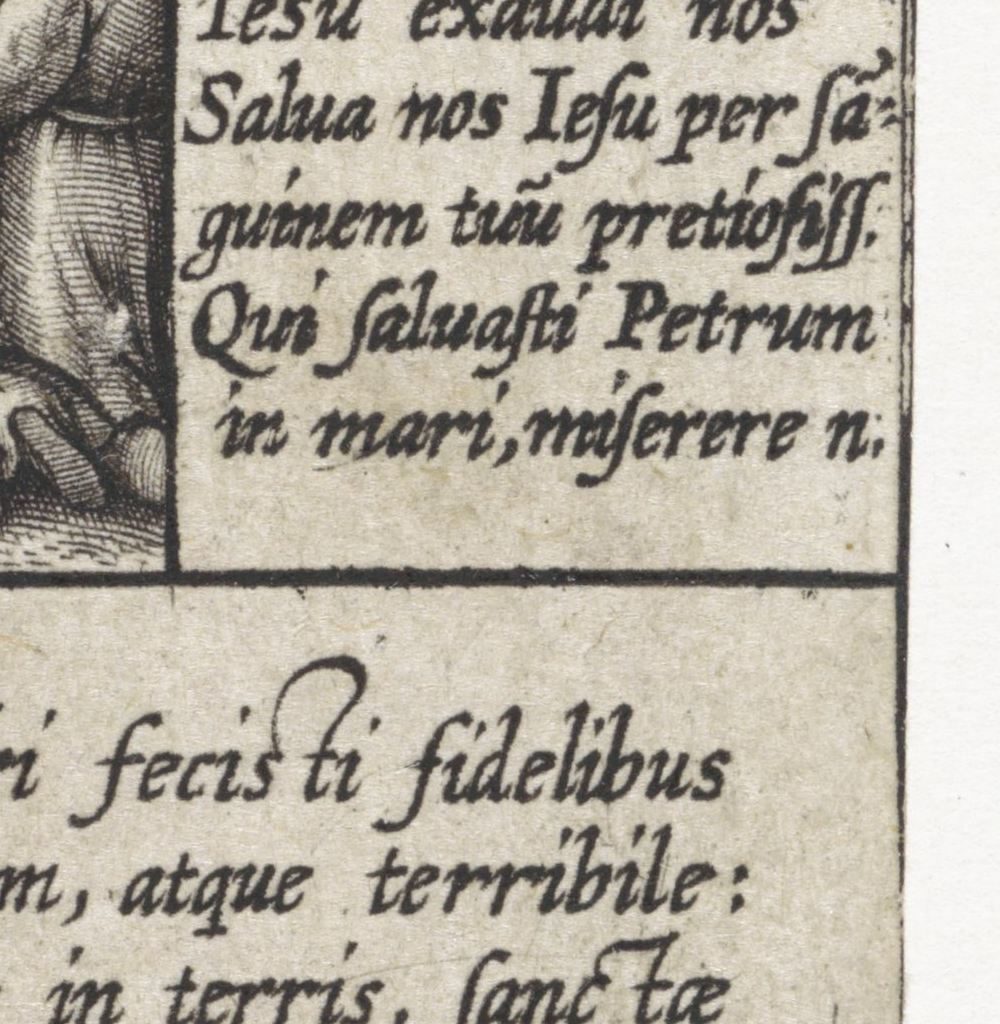 Iesu exaudi nos
Salua nos Ieſu per ſã-
guinem tuũ pretioſiſſ.
Qui ſaluaſti Petrum
in mari, miſerere n:
ri fecisti fidelibus
m, atque terribile:
in terris, ſanctæ